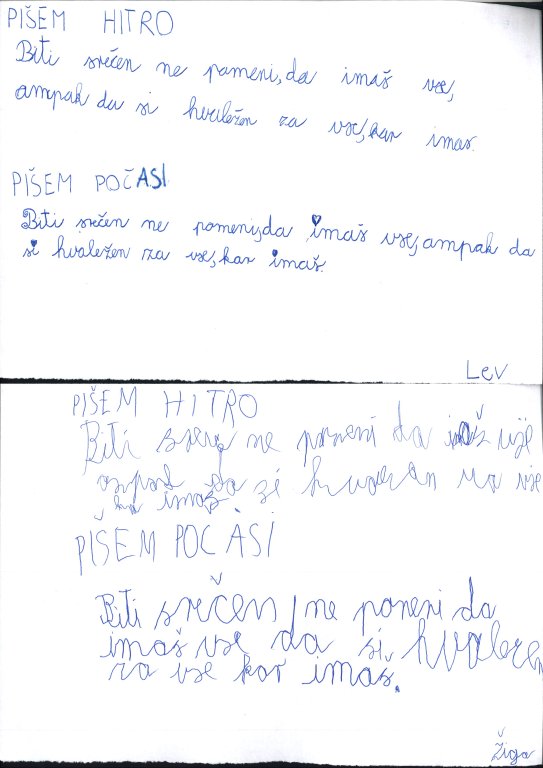 PIŠEM HITRO
Biti srečen ne pomeni, da imaš vse,
ampak da si hvaležen za vse, kar imas.
PIŠEM POČASI
Biti srečen ne pomeni, da imaš vse, ampak da
si hvaležen za vse, kar imaš.
Lev
PIŠEM HITRO
Biti ne da
da si
imaš
PIŠEM POČASI
Biti srečen, ne poneni da
imaš vse da si hvaležen
za vse kar imaš.
Žiga